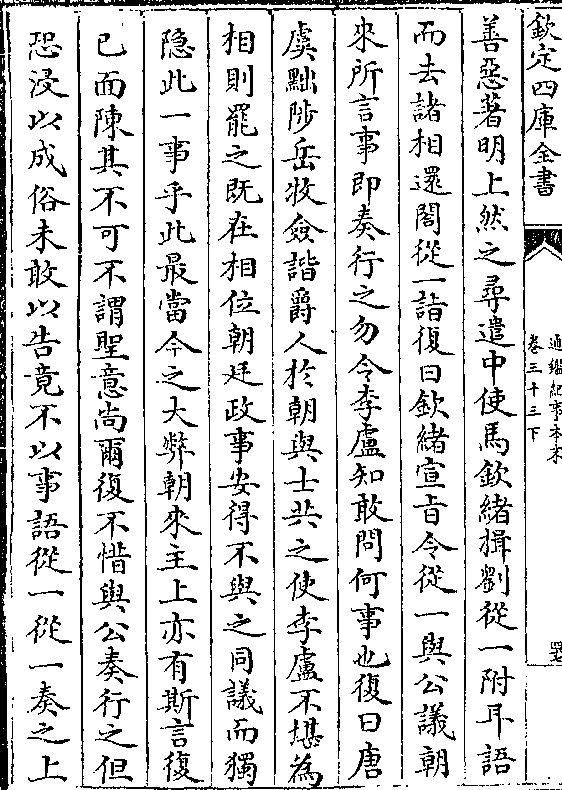 欽定四庫全書
通鑑紀事本末
卷三十三下
善惡著明上然之尋遣中使馬欽緒揖劉從一附耳語
而去諸相還閣從一詣復曰欽緒宣旨令從一與公議朝
來所言事即奏行之勿令李盧知敢問何事也復曰唐
虞黜陟岳牧僉諧爵人於朝與士共之使李盧不堪為
相則罷之既在相位朝廷政事安得不與之同議而獨
隐此一事乎此最當今之大弊朝來主上亦有斯言復
已面陳其不可不謂聖意尚爾復不惜與公奏行之但
恐浸以成俗未敢以告竟不以事語從一從一奏之上